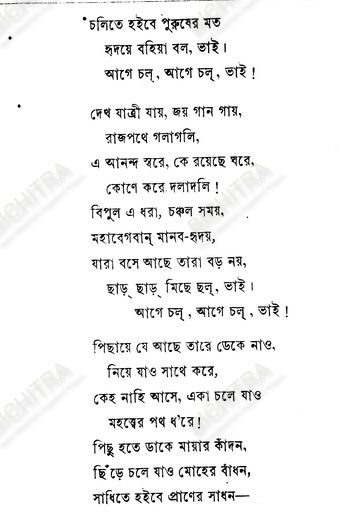 চলিতে হইবে পুরুষের মত
হৃদয়ে বহিয়া বল, ভাই।
আগে চল্, আগে চল্, ভাই!
দেখ যাত্রী যায়, জয় গান গায়,
রাজপথে গলাগলি,
এ আনন্দ স্বরে, কে রয়েছে ঘরে,
কোণে করে দলাদলি!
বিপুল এ ধরা, চঞ্চল সময়,
মহাবেগবান্ মানব-হৃদয়,
যারা বসে আছে তারা বড় নয়,
ছাড়্ ছাড়্ মিছে ছল্, ভাই।
আগে চল্, আগে চল্, ভাই!
পিছায়ে যে আছে তারে ডেকে নাও,
নিয়ে যাও সাথে করে,
কেহ নাহি আসে, একা চলে যাও
মহত্ত্বের পথ ধ'রে!
পিছু হতে ডাকে মায়ার কাঁদন,
ছিঁড়ে চলে যাও মোহের বাঁধন,
সাধিতে হইবে প্রাণের সাধন—
BICHITRA